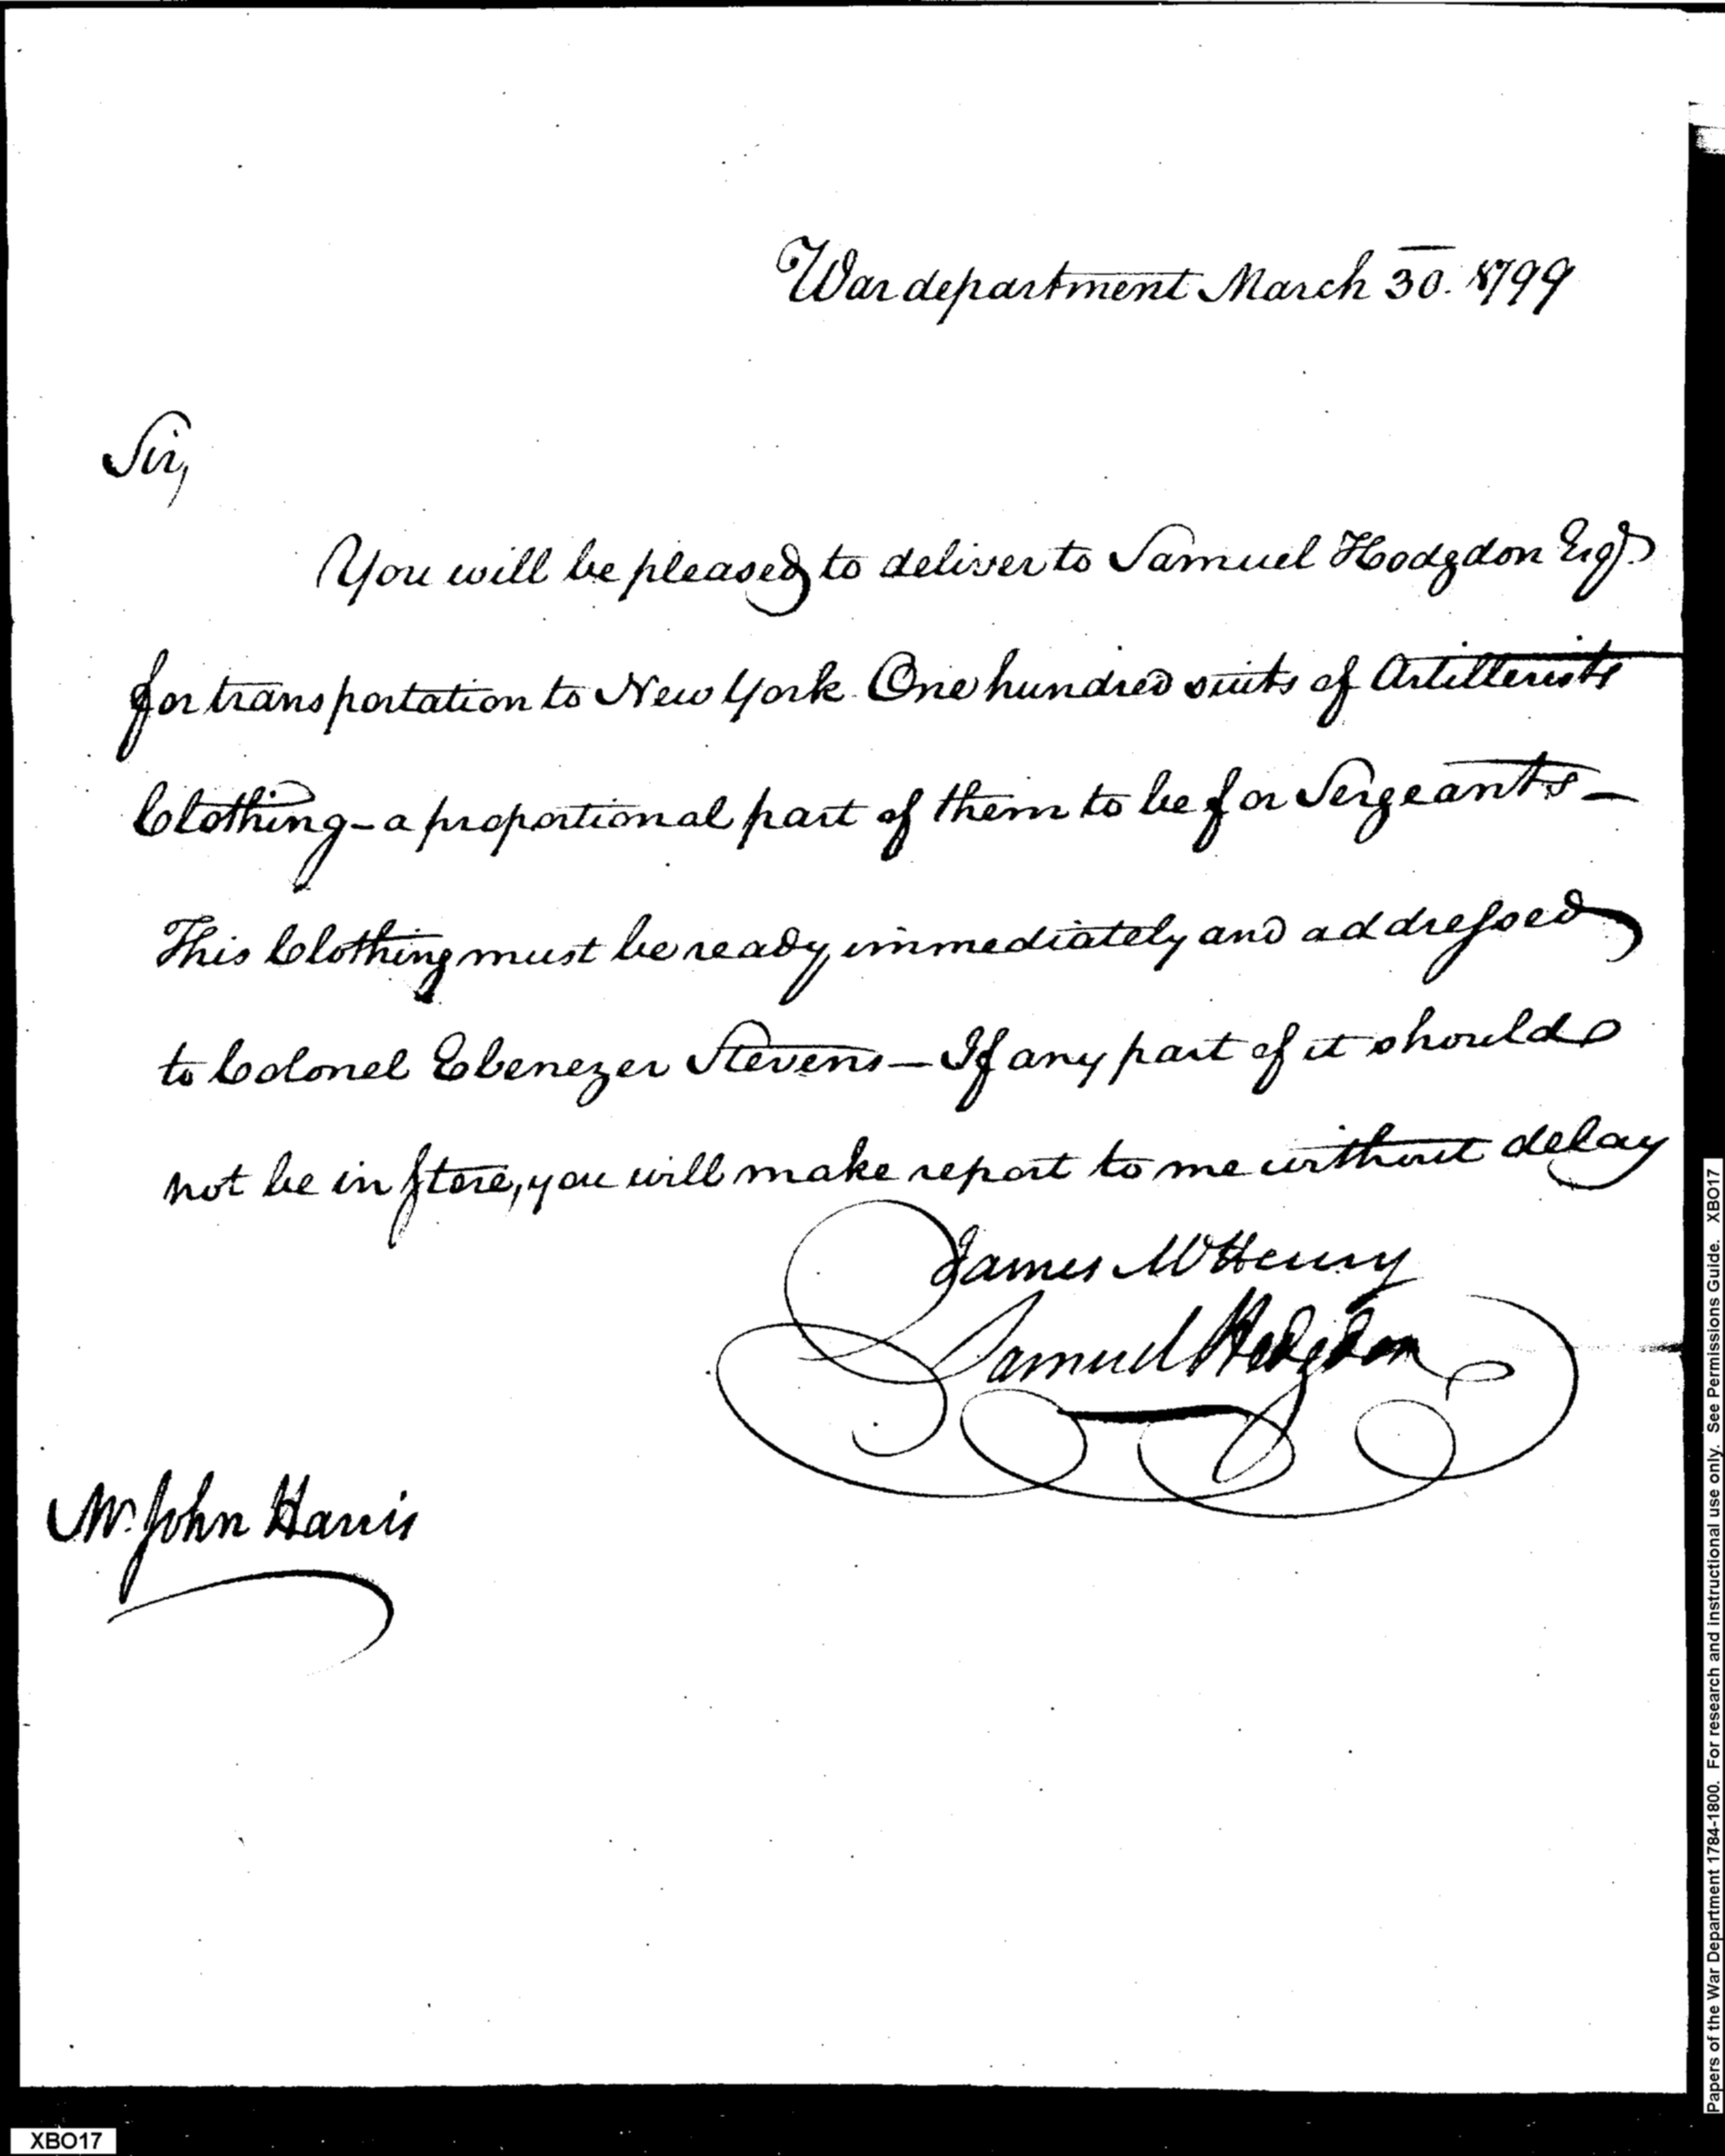 War department March 30. 1799
Sir,
You will be pleased to deliver to Samuel Hodgdon Esqr.
for transportation to New York One hundred suits of Artillerists
Clothing - a proportional part of them to be for Sergeants -
This Clothing must be ready immediately and addressed
to Colonel Ebenezer Stevens - If any part of it should
not be in store, you will make report to me without delay
James McHenry
Samuel Hodgdon
Mr. John Harris
XBO17
Papers of the War Department 1784-1800. For research and instructional use only. See Permissions Guide. XBO17